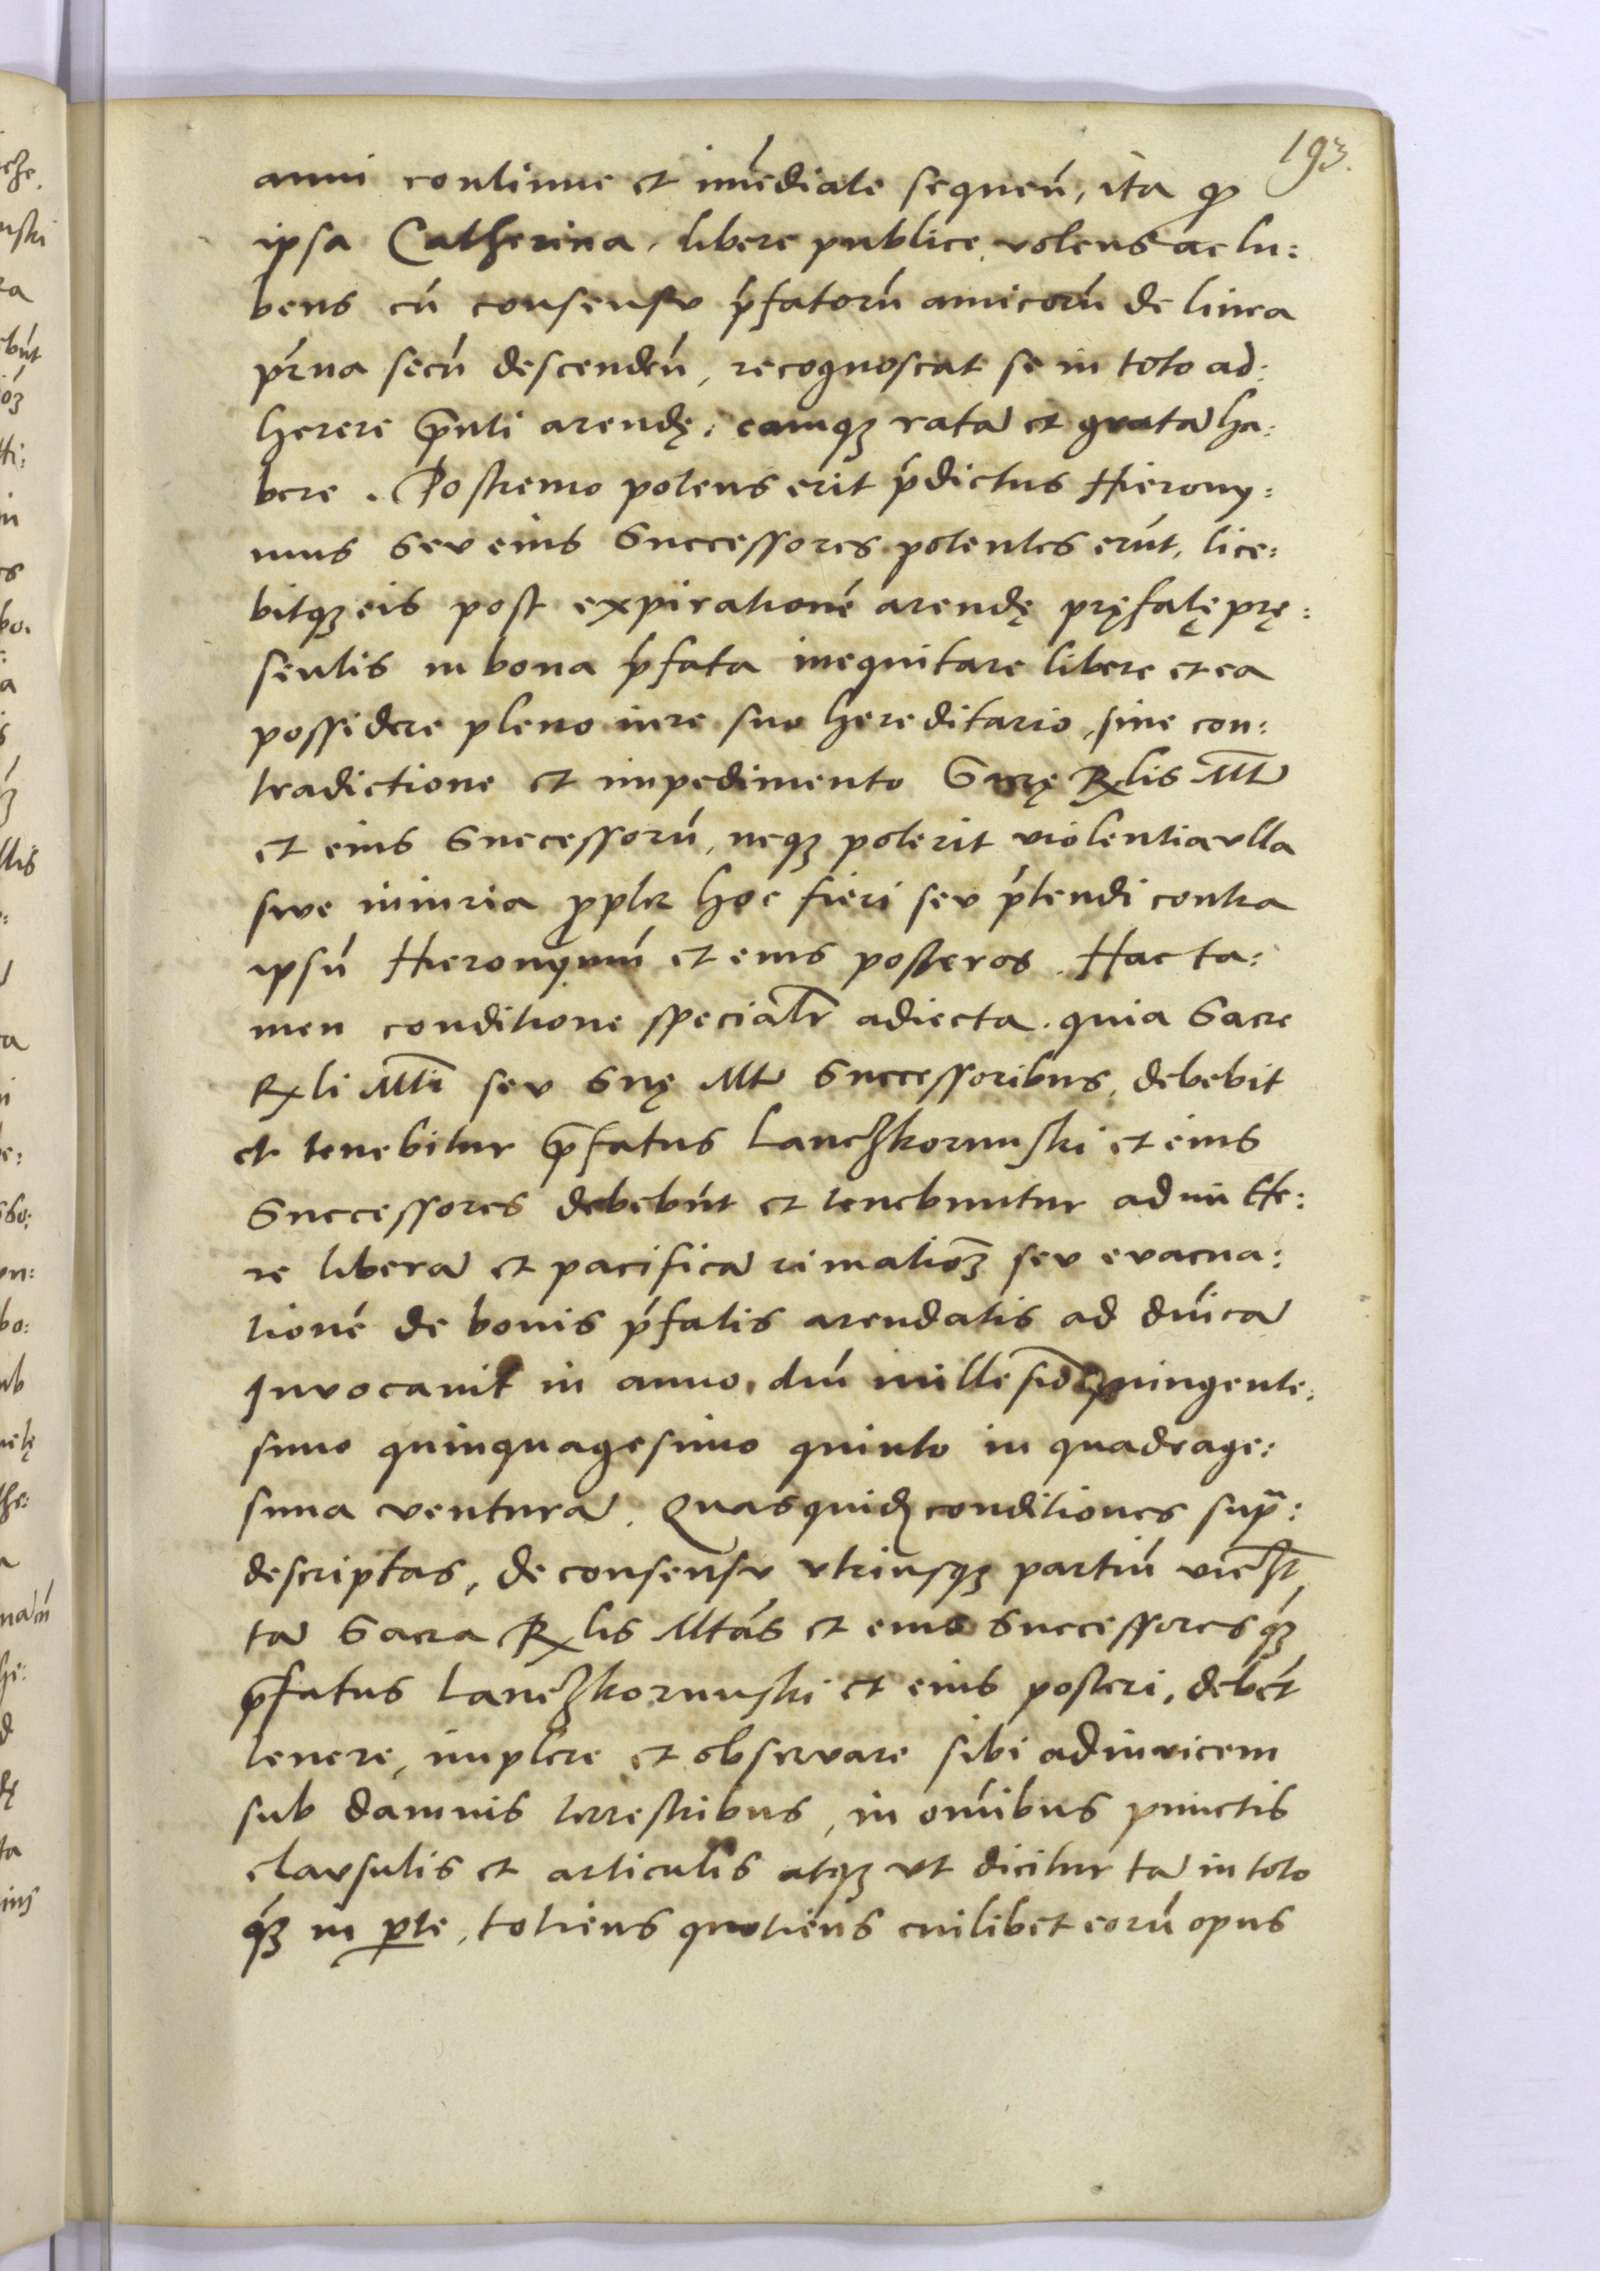 193.
anni continue et im̄ediate sequeñ, ita ꝙ
ipsa Catherina, libere publice, volens ac lu:
bens cū consensu p̄fatorū amicorū de linea
pr̄na secū descendeñ, recognoscat se in toto ad:
herere p̄nti arendę, eamqꝫ ratā et gratā ha:
bere. Postremo potens erit p̄dictus Hierony:
mus seu eius Successores potentes erūt, lice:
bitqꝫ eis post expirationē arendę pręfatę prę:
sentis in bona p̄fata inequitare libere et ea
possidere pleno iure suo hereditario, sine con:
tradictione et impedimento Sacrę Rlis Mt̄
et eius Successorū, neqꝫ poterit violentia ulla
sive iniuria ꝓptr̄ hoc fieri seu p̄tendi contra
ipsū Hieronymū et eius posteros. Hac ta:
men conditione specialr̄ adiecta. quia Sacre
Rli Mt̄i seu Suę Mt̄ Successoribus, debebit
et tenebitur p̄fatus Lanczkorunski et eius
Successores debebūt et tenebuntur admitte:
re liberā et pacificā rimatioꝫ seu evacua:
tionē de bonis p̄fatis arendatis ad dn̄icā
Invocavit in anno, dn̄i millesīo quingente:
simo quinquagesimo quinto in quadrage:
sima venturā. Quasquidꝫ conditiones sup̄:
descriptas, de consensu utriusqꝫ partiū
tā Sacra Rlis Mtās et eius Successores qꝫ̄
p̄fatus Lanczkorunski et eius posteri, debēt
tenere, implere et observare sibi adinvicem
sub damnis terrestribus, in om̄ibus punctis
clausulis et articulis atqꝫ ut dicitur tā in toto
qꝫ̄ in ꝑte, totiens quotiens cuilibet eorū opus